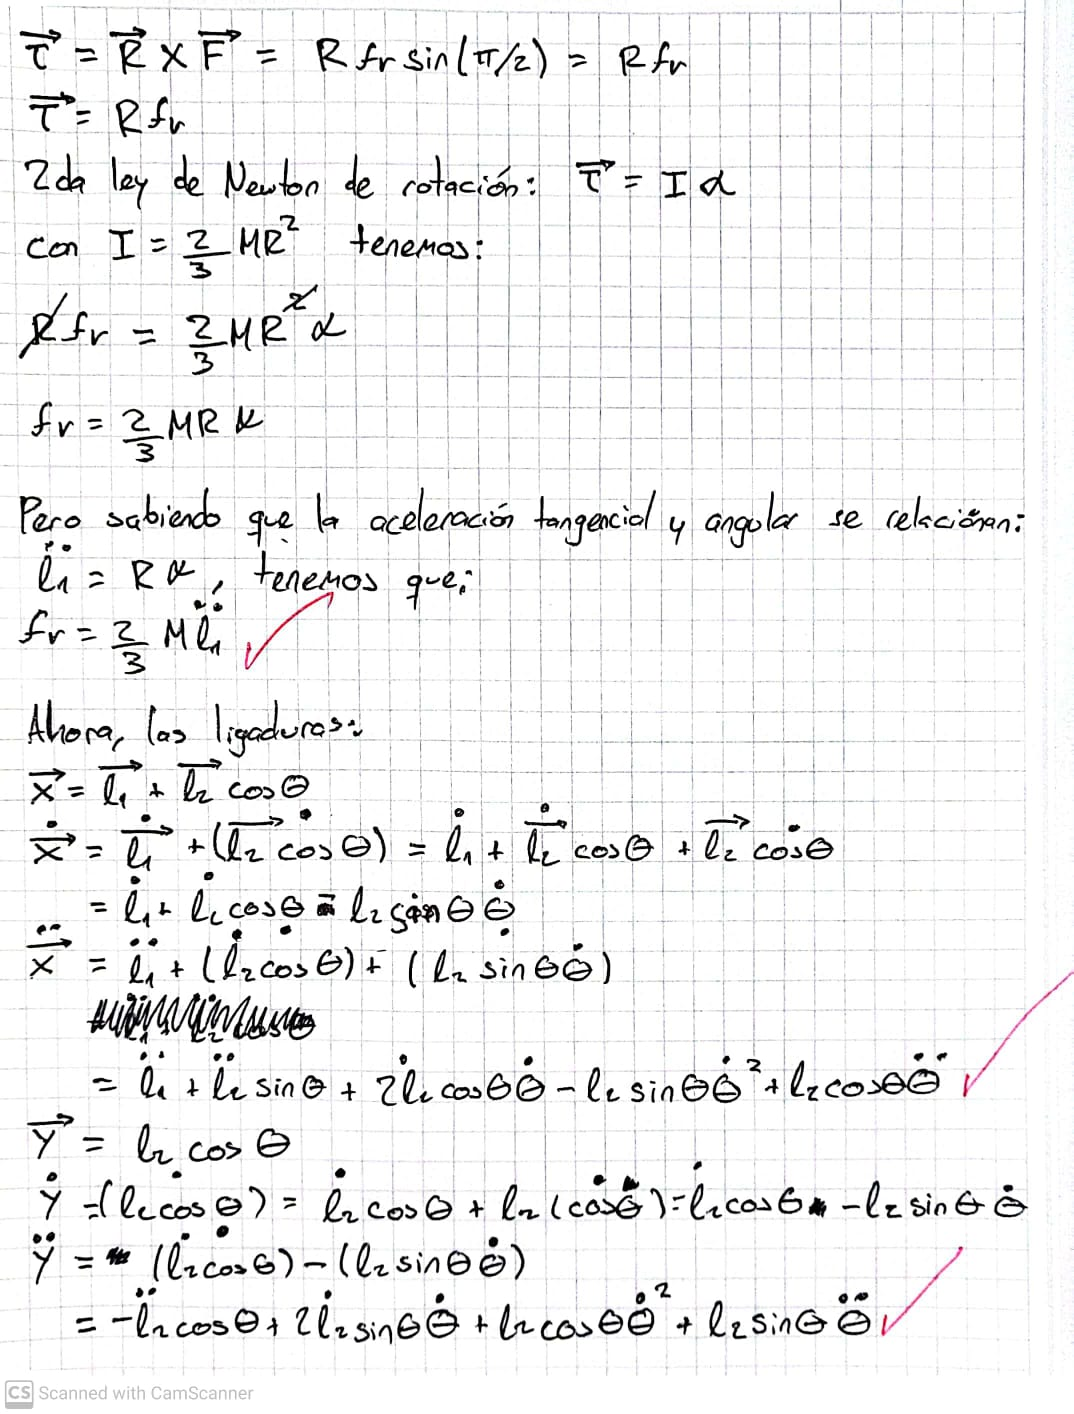 τ⃗ = R⃗ × F⃗ = R fr sin(π/2) = R fr
τ⃗ = R fr
2da ley de Newton de rotación: τ⃗ = I α
con I = 2/3 MR² tenemos:
R fr = 2/3 MR² α
fr = 2/3 MR α
Pero sabiendo que la aceleración tangencial y angular se relaciónan:
l̈₁ = R α, tenemos que:
fr = 2/3 M l̈₁
Ahora, las ligaduras:
x⃗ = l⃗₁ + l⃗₂ cos θ
ẋ⃗ = l̇⃗₁ + (l⃗₂ cos θ)˙ = l̇₁ + l̇⃗₂ cos θ + l⃗₂ cos˙θ
= l̇₁ + l̇₂ cos θ - l₂ sin θ θ̇
ẍ⃗ = l̈₁ + (l̇₂ cos θ)˙ + (l₂ sin θ θ̇)˙
= l̈₁ + l̈₂ sin θ + 2 l̇₂ cos θ θ̇ - l₂ sin θ θ̇² + l₂ cos θ θ̈
Y⃗ = l₂ cos θ
Ẏ = (l₂ cos θ)˙ = l̇₂ cos θ + l₂ (cos θ)˙ = l̇₂ cos θ - l₂ sin θ θ̇
Ÿ = (l̇₂ cos θ)˙ - (l₂ sin θ θ̇)˙
= - l̈₂ cos θ + 2 l̇₂ sin θ θ̇ + l₂ cos θ θ̇² + l₂ sin θ θ̈
CS Scanned with CamScanner